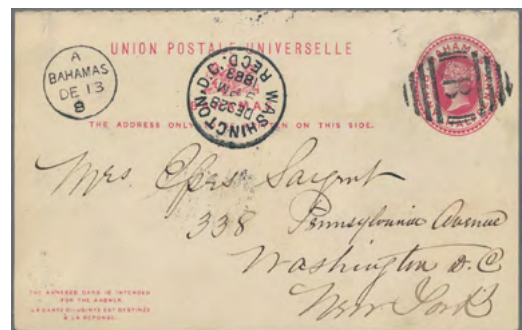 UNION POSTALE UNIVERSELLE
A
BAHAMAS
DE 13
8
WASHINGTON D.C.
1883
REC'D.
BAHAMAS
THE ADDRESS ONLY ON THIS SIDE.
Mrs. Sargent
338 Pennsylvania Avenue
Washington D.C
New York
THE ANNEXED CARD IS INTENDED
FOR THE ANSWER.
LA CARTE CI-JOINTE EST DESTINÉE
À LA RÉPONSE.